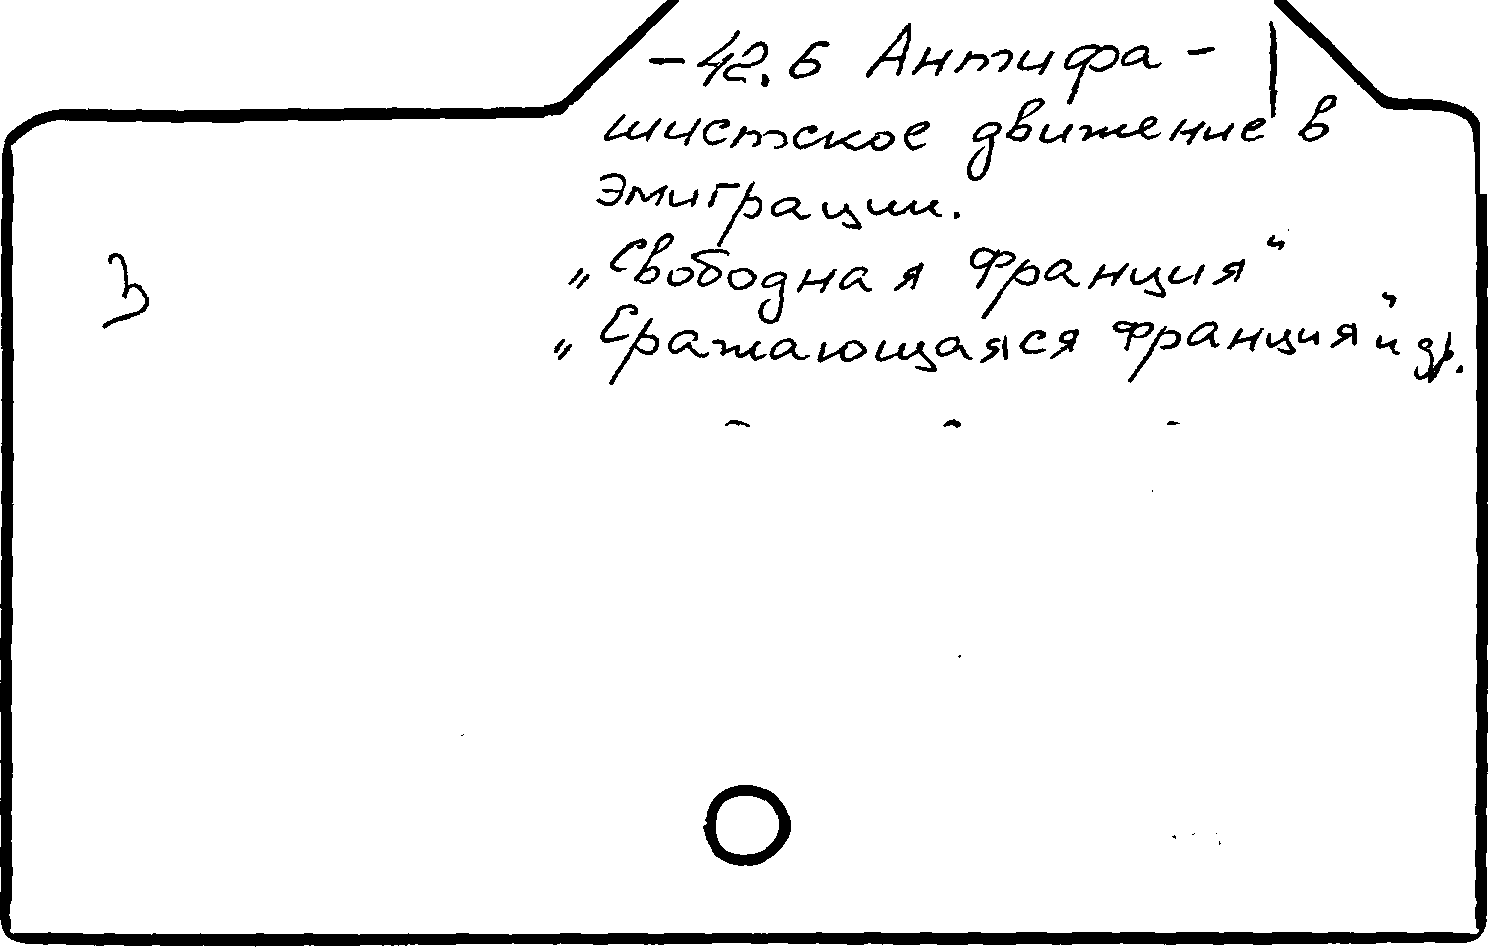 -42.6 Антифа-
шистское движение в
эмиграции.
„Свободная Франция"
„Сражающаяся Франция" и др.
З